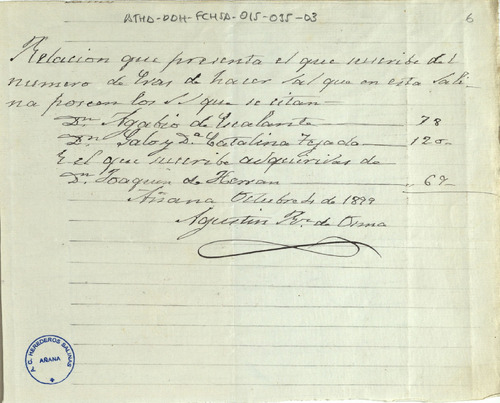 ATHA-DDH-FCHSA-015-035-03
6
Relacion que presenta el que suscribe del
numero de Eras de hacer Sal que en esta Sali-
na poseen los SS que se citan
Dn. Agabio de Escalante 78
Dn. Galo y Da. Catalina Tejada 120
Y el que suscribe adquiridas de
Dn. Joaquin de Herran 69
Añana Octubre 4 de 1899
Agustin Rz. de Osma
A. C. HEREDEROS SALINAS
AÑANA